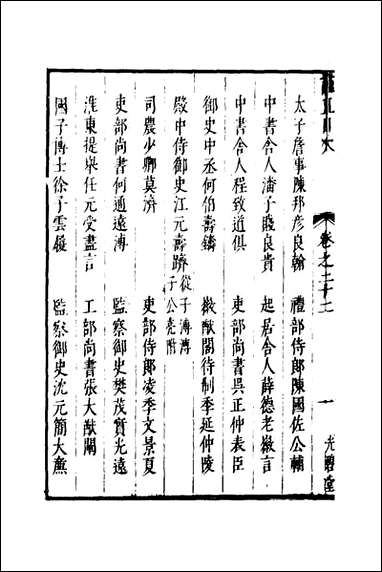 卷之二十二
一
太子詹事陳邦彥良翰　禮部侍郎陳國佐公輔
中書舍人潘子賤良貴　起居舍人薛德老徽言
中書舍人程致道俱　吏部尚書吳正仲表臣
御史中丞何伯壽鑄　徽猷閣待制季延仲陵
殿中侍御史江元壽躋從子溥溥子公亮附
司農少卿莫濟　吏部侍郎凌季文景夏
吏部尚書何通遠溥　監察御史樊茂實光遠
淮東提舉任元受盡言　工部尚書張大猷闡
國子博士徐子雲履　監察御史沈元簡大廉